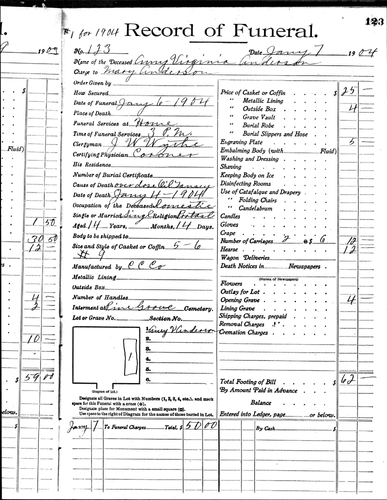 123
#1 for 1904 Record of Funeral.
No. 123 Date Jany 7 1904
Name of the Deceased Amy Virginia Anderson
Charge to Mary Anderson
Order Given by
How Secured
Date of Funeral Jany 6 - 1904
Place of Death
Funeral Services at Home
Time of Funeral Services 3 P.M.
Clergyman J W Wythe
Certifying Physician Coroner
His Residence
Number of Burial Certificate
Cause of Death overdose Oil Tansey
Date of Death Jany 4 - 1904
Occupation of the Deceased Domestic
Single or Married Single Religion
Aged 14 Years, Months, 14 Days.
Body to be shipped to
Size and Style of Casket or Coffin 5-6
#9
Manufactured by C C Co
Metallic Lining
Outside Box
Number of Handles
Interment at Pine Grove Cemetery.
Lot or Grave No. Section No.
1.
2.
3.
4.
5.
6.
(Diagram of Lot.)
Designate all Graves in Lot with Numbers (1, 2, 3, 4, etc.), and mark space for this Funeral with a cross (x).
Designate place for Monument with a small square (□).
Use space to the right of Diagram for the names of those buried in Lot.
Jany 7 To Funeral Charges Total, $ 50 00
Price of Casket or Coffin $ 25 —
" Metallic Lining
" Outside Box 4
" Grave Vault
" Burial Robe
" Burial Slippers and Hose
Engraving Plate 5
Embalming Body (with Fluid)
Washing and Dressing
Shaving
Keeping Body on Ice
Disinfecting Rooms
Use of Catafalque and Drapery
" Folding Chairs
" Candelabrum
Candles
Gloves
Crape
Number of Carriages 2 @ $ 6 12
Hearse 12
Wagon Deliveries
Death Notices in Newspapers
(Names of Newspapers)
Flowers
Outlay for Lot
Opening Grave 4 —
Lining Grave
Shipping Charges, prepaid
Removal Charges
Cremation Charges
Total Footing of Bill $ 62 —
By Amount Paid in Advance
Balance
Entered into Ledger, page or below.
By Cash $